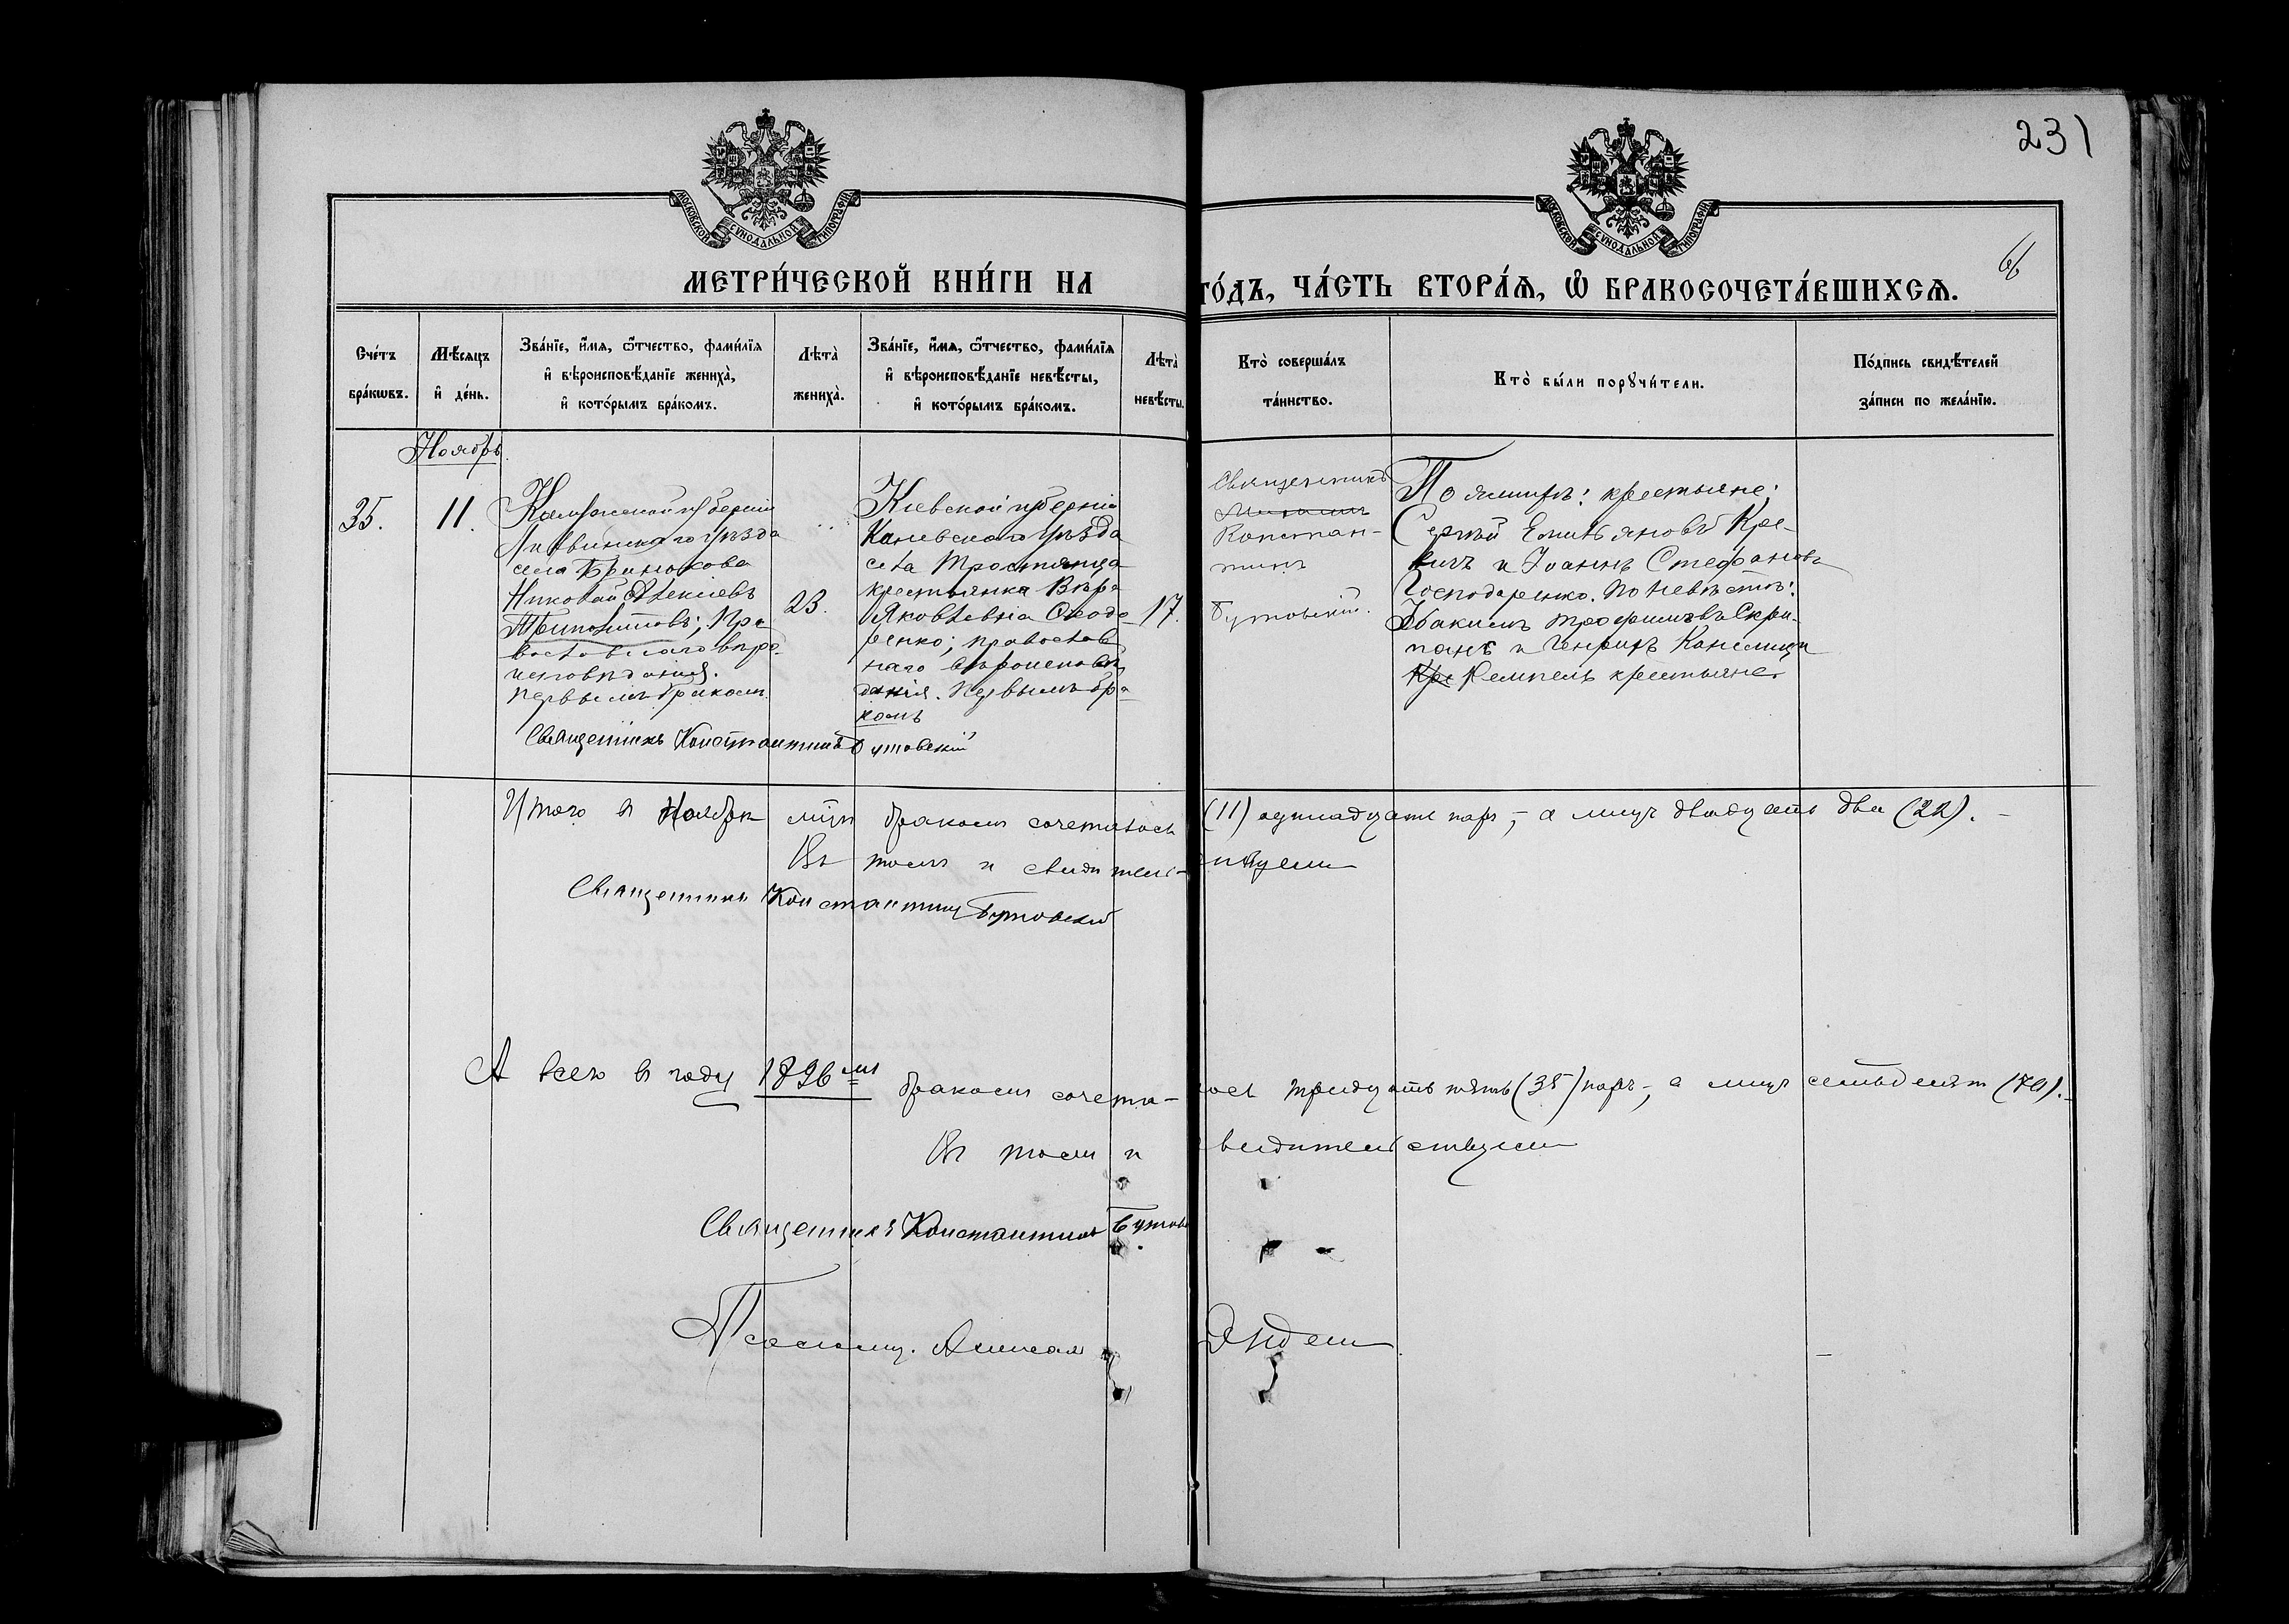 231
66
МОСКОВСКОЙ СѴНОДАЛЬНОЙ ТИПОГРАФІИ
МОСКОВСКОЙ СѴНОДАЛЬНОЙ ТИПОГРАФІИ
МЕТРИ́ЧЕСКОЙ КНИ́ГИ НА ГО́ДЪ, ЧА́СТЬ ВТОРА́Ѧ, Ѽ БРАКОСОЧЕТА́ВШИХСѦ.
Сче́тъ бра́кѡвъ.
Мѣ́сѧцъ и҆ де́нь.
Зва́нїе, и҆́мѧ, ѻ҆́тчество, фами́лїѧ
и҆ вѣроисповѣ́данїе жениха̀,
и҆ кото́рымъ бра́комъ.
Лѣта̀ жениха̀.
Зва́нїе, и҆́мѧ, ѻ҆́тчество, фами́лїѧ
и҆ вѣроисповѣ́данїе невѣ́сты,
и҆ кото́рымъ бра́комъ.
Лѣта̀ невѣ́сты.
Кто̀ соверша́лъ та́инство.
Кто̀ бы́ли порꙋчи́тели.
По́дпись свидѣ́телей
за́писи по жела́нїю.
Ноябрь
35.
11.
Калужской губерніи
Лихвинскаго уѣзда
села
Николай Алексіевъ
Пра
вославнаго вѣро
исповѣданія.
Первымъ бракомъ
23.
Кіевской губерніи
Каневскаго Уѣзда
села Тростянца
крестьянка Вѣра
Яковлевна Сводо
ренко; православ
наго вѣроисповѣ
данія. Первымъ бра
комъ
17.
Священникъ
Констан-
тинъ
Бутовскій.
По женихѣ: крестьяне:
Сергій Емиліановъ Кре-
вичъ и Іоаннъ Стефановъ
Господаренко. По невѣстѣ:
Іоакимъ Трофимовъ Скри-
панъ и Генрихъ
Ремпель крестьяне.
Священникъ Константинъ Бутовскій
Итого въ Ноябрѣ м̃цѣ бракомъ сочеталось (11) одинадцать паръ, а лицъ двадцать два (22).
Въ томъ и свидѣтельствуемъ
Священникъ Константинъ Бутовскій
А всего въ году 1896мъ бракомъ сочеталось тридцать пять (35) паръ, а лицъ семьдесят (70).
Въ томъ и свидѣтельствуемъ
Священникъ Константинъ Бутов
Псаломщ.